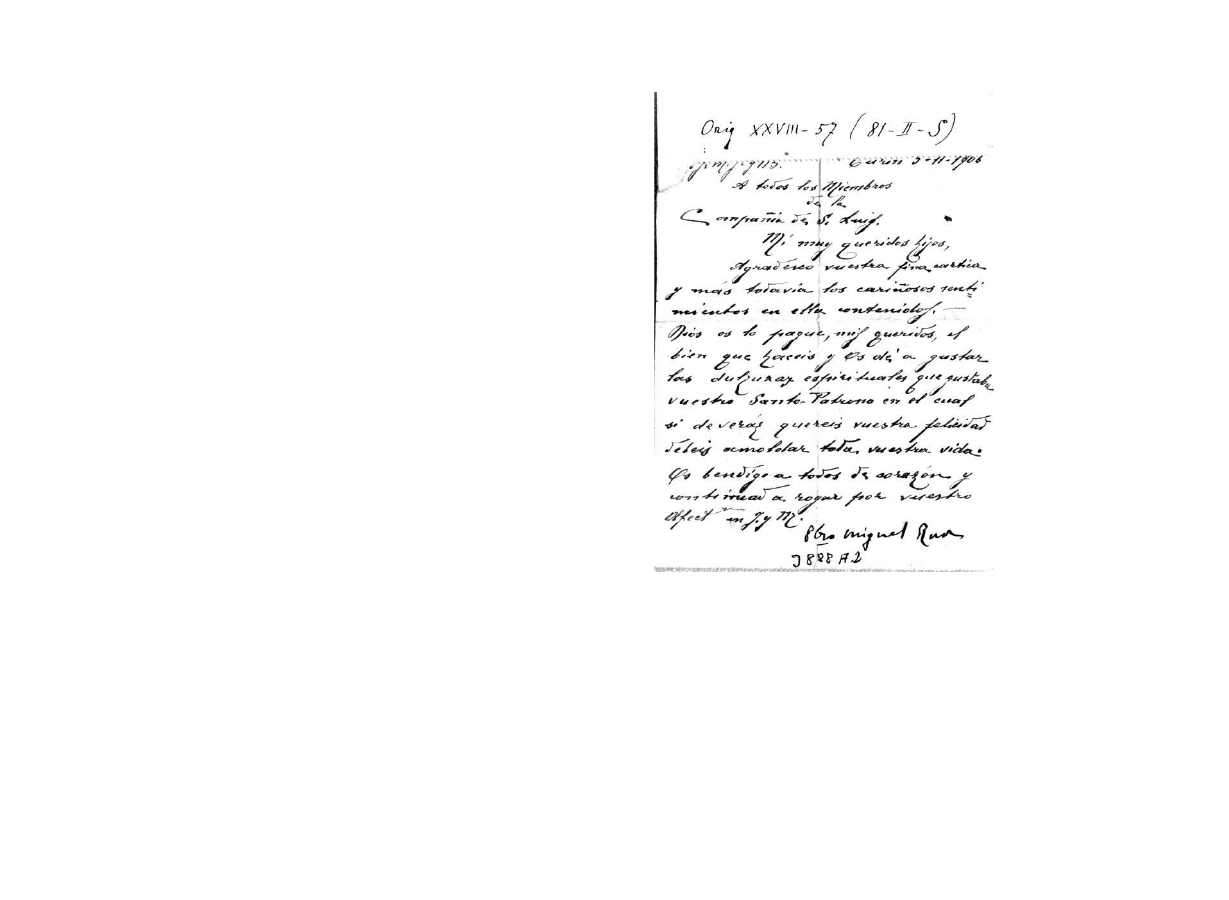 Orig XXVIII-57 (81-II-S)
Turin 5-11-1906
A todos los Miembros
de la
Compañia de S. Luis.
Mis muy queridos hijos,
Agradesco vuestra fina cartica
y más todavia los cariñosos senti
mientos en ella contenidos.—
Dios os lo pague, mis queridos, el
bien que haceis y Os dé a gustar
las dulzuras espirituales que gustaba
vuestro Santo-Patrono en el cual
si de veras quereis vuestra felicidad
debeis amoldar toda vuestra vida.
Os bendigo a todos de corazón y
continuad a rogar por vuestro
Afect en J. y M.
Pbro Miguel Rua
3888 A2